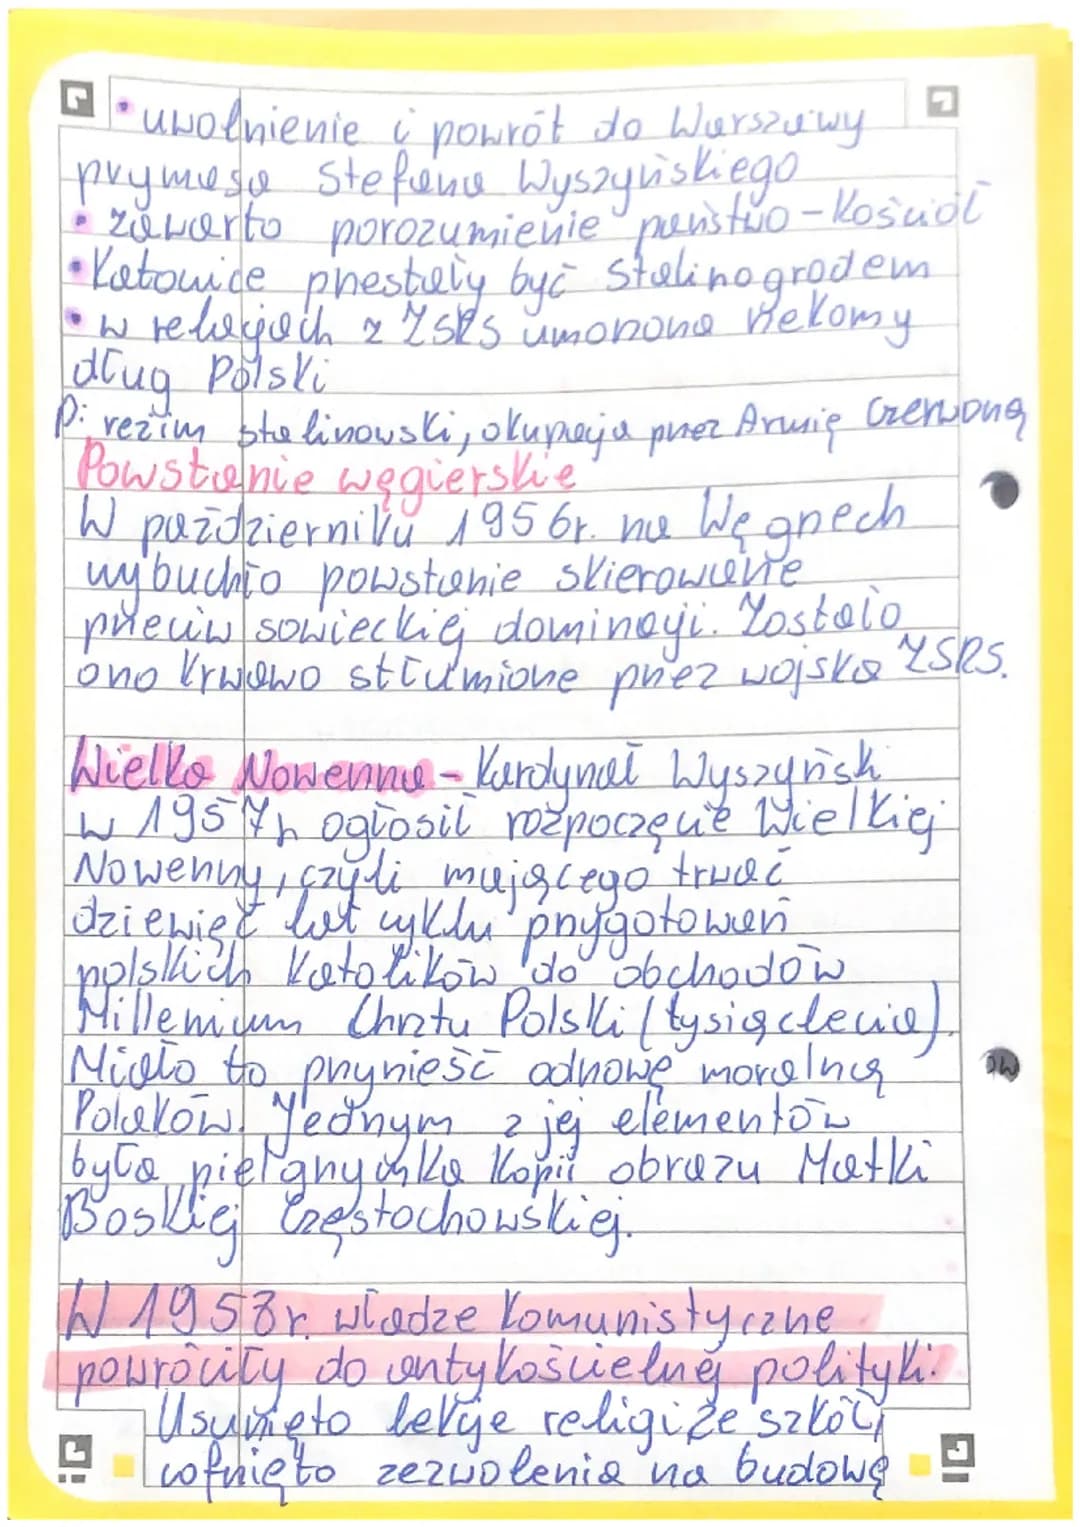 • uwolnienie i powrót do Warszawy
prymasa Stefana Wyszyńskiego
• zawarto porozumienie państwo-Kościół
• Katowice przestały być Stalinogrodem
• w relacjach z ZSRS umorzono rzekomy
dług Polski
P: reżim stalinowski, okupacja przez Armię Czerwoną
Powstanie węgierskie
W październiku 1956r. na Węgrzech
wybuchło powstanie skierowane
przeciw sowieckiej dominacji. Zostało
ono krwawo stłumione przez wojska ZSRS.
Wielka Nowenna - Kardynał Wyszyńsk
w 1957r ogłosił rozpoczęcie Wielkiej
Nowenny, czyli mającego trwać
dziewięć lat cyklu przygotowań
polskich katolików do obchodów
Millenium Chrztu Polski (tysiąclecia).
Miało to przynieść odnowę moralną
Polaków. Jednym z jej elementów
była pielgrzymka kopii obrazu Matki
Boskiej Częstochowskiej.
W 1958r. władze komunistyczne
powróciły do antykościelnej polityki:
Usunięto lekcje religii ze szkół,
cofnięto zezwolenia na budowę